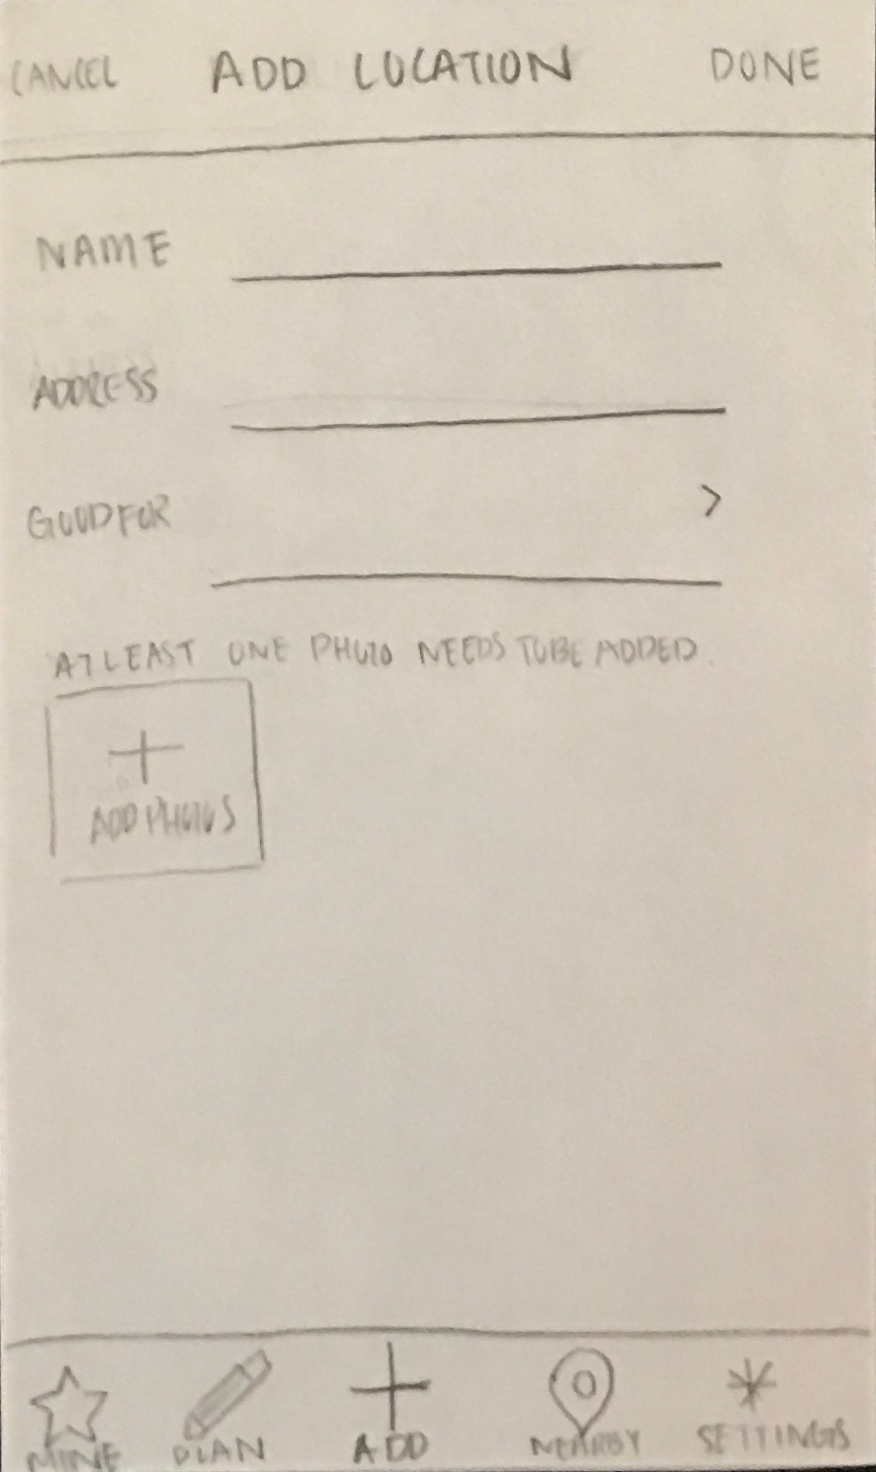 CANCEL ADD LOCATION DONE
NAME
ADDRESS
GOOD FOR >
AT LEAST ONE PHOTO NEEDS TO BE ADDED.
+
ADD PHOTOS
MINE PLAN ADD NEARBY SETTINGS